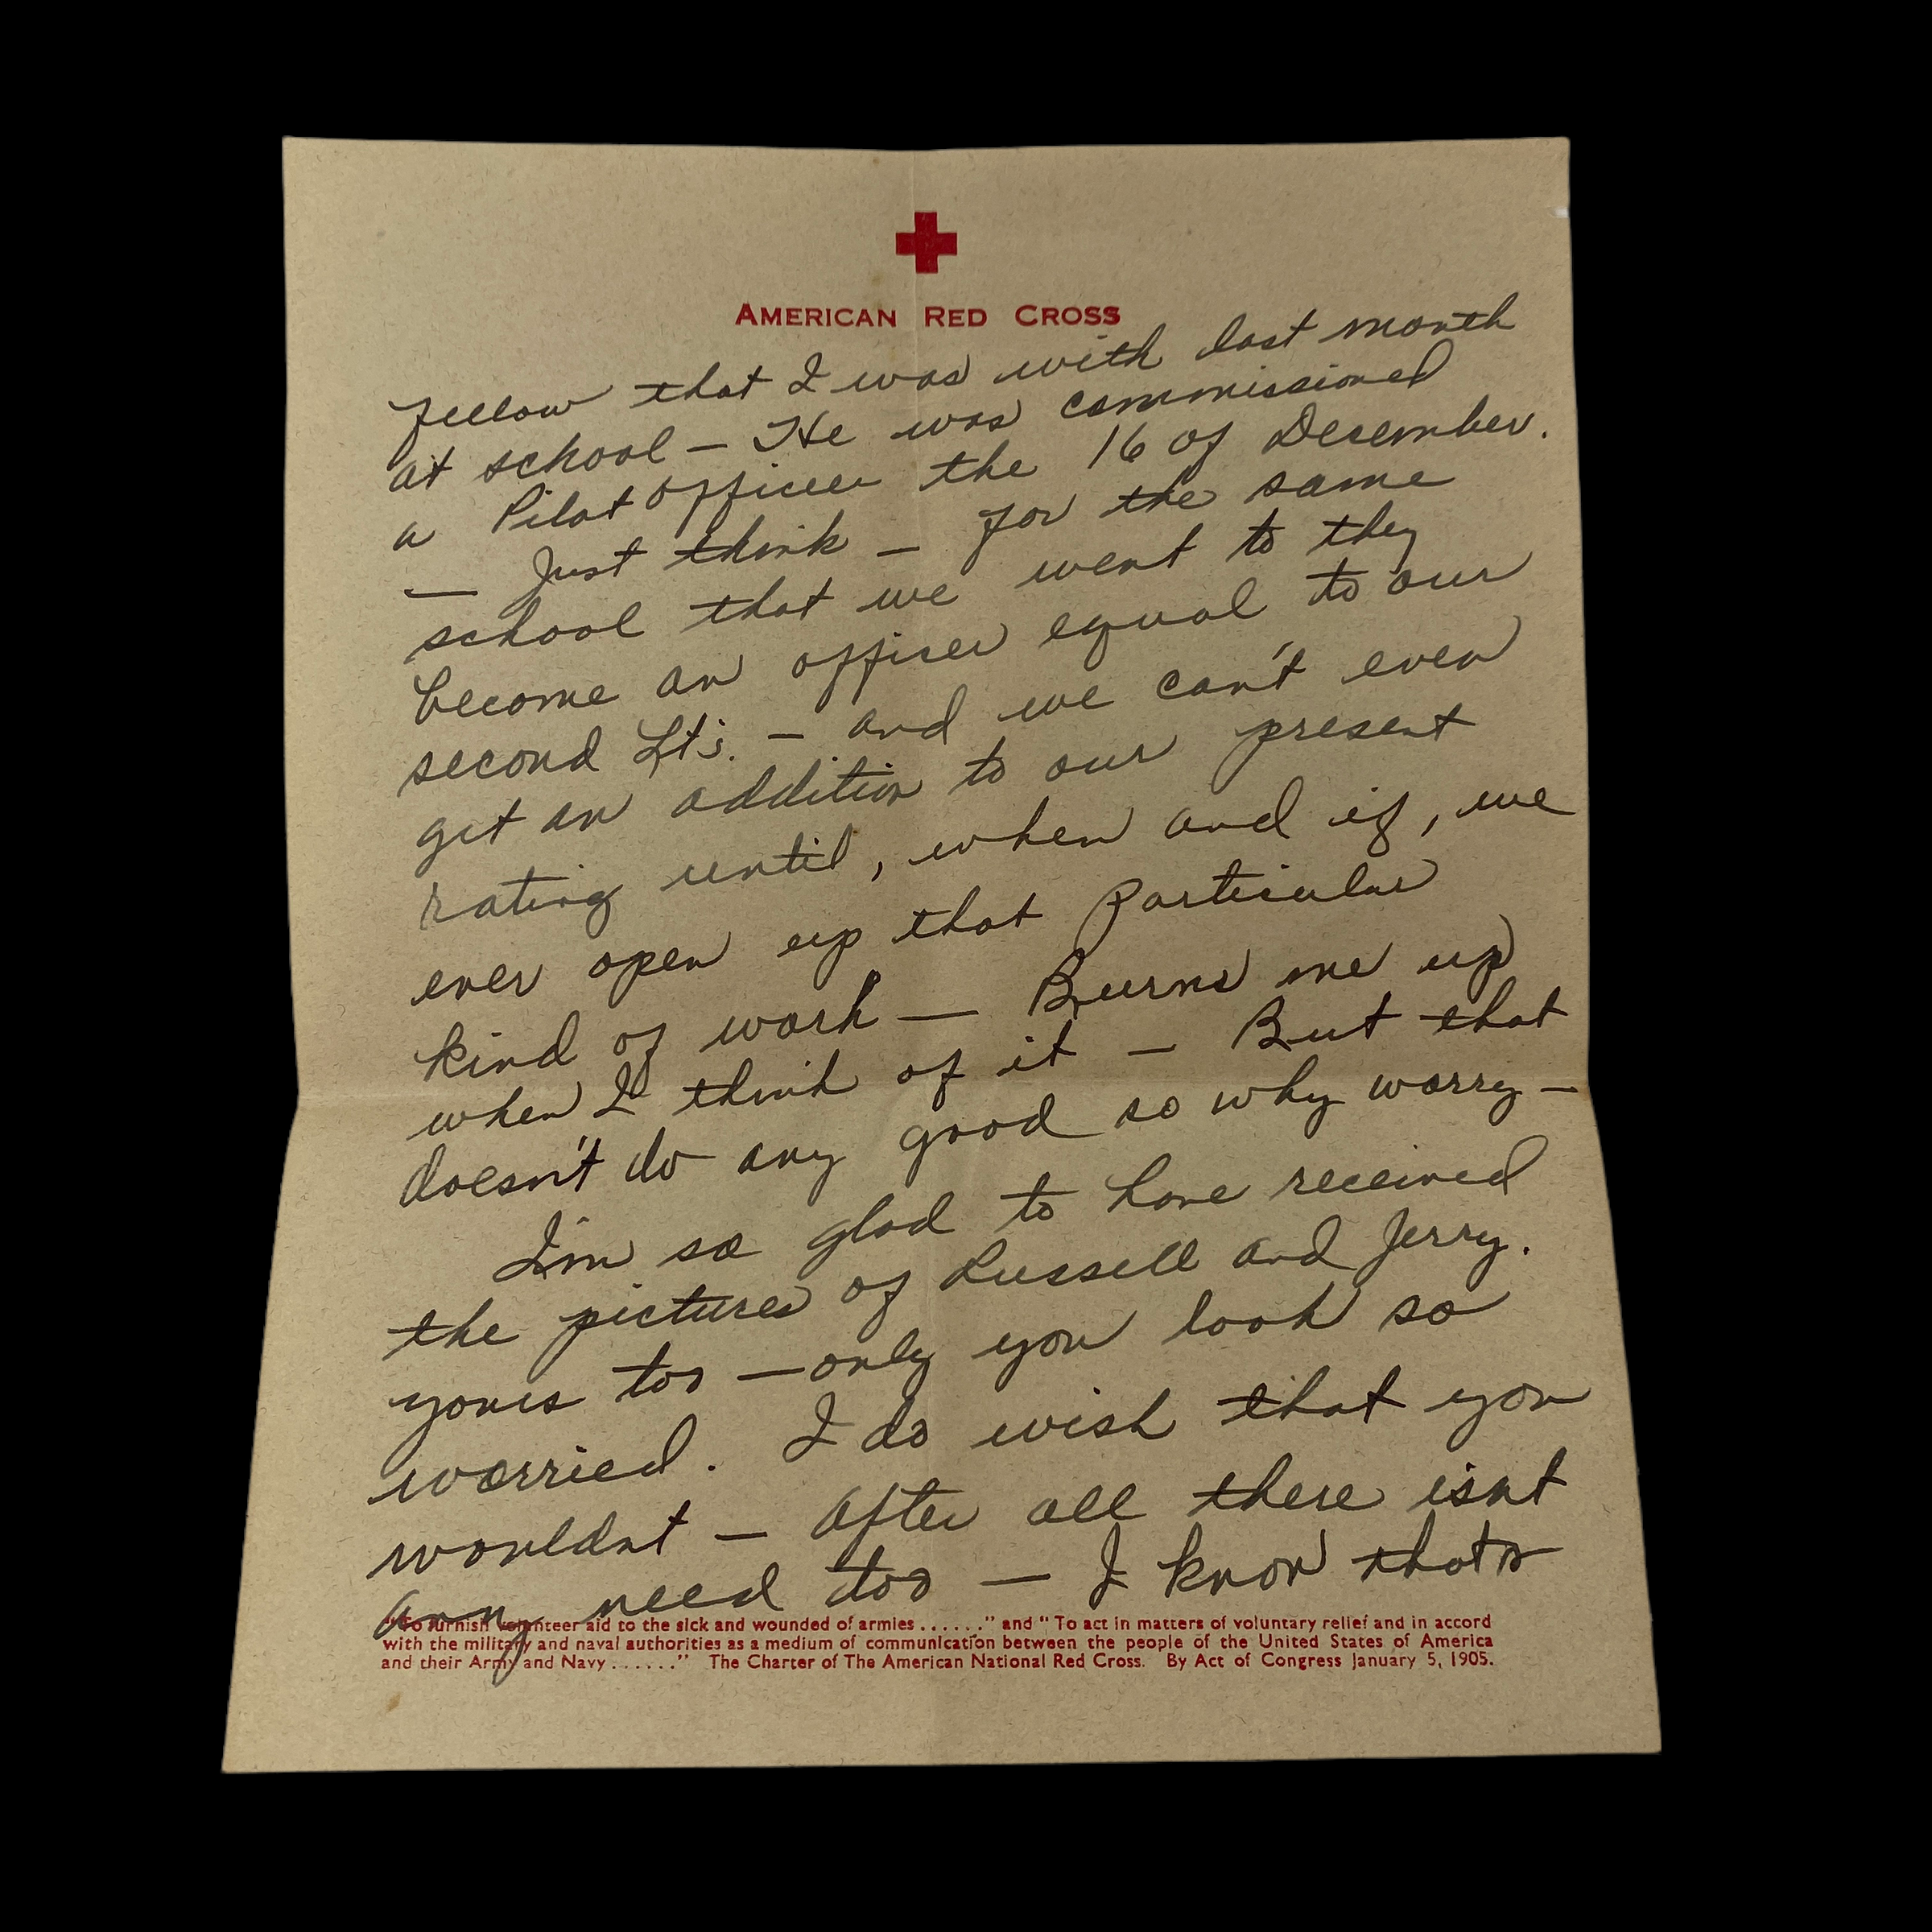 AMERICAN RED CROSS
fellow that I was with last month
at school – He was commissioned
a Pilot officer the 16 of December.
— Just think – for the same
school that we went to they
become an officer equal to our
second Lt's. – and we can't even
get an addition to our present
rating until, when and if, we
ever open up that particular
kind of work — Burns me up
when I think of it – But that
doesn't do any good so why worry –
I'm so glad to have received
the pictures of Russell and Jerry.
yours too – only you look so
worried. I do wish that you
wouldnt – After all there isnt
any need too — I know thats
"To furnish volunteer aid to the sick and wounded of armies ......" and "To act in matters of voluntary relief and in accord
with the military and naval authorities as a medium of communication between the people of the United States of America
and their Army and Navy ......" The Charter of The American National Red Cross. By Act of Congress January 5, 1905.